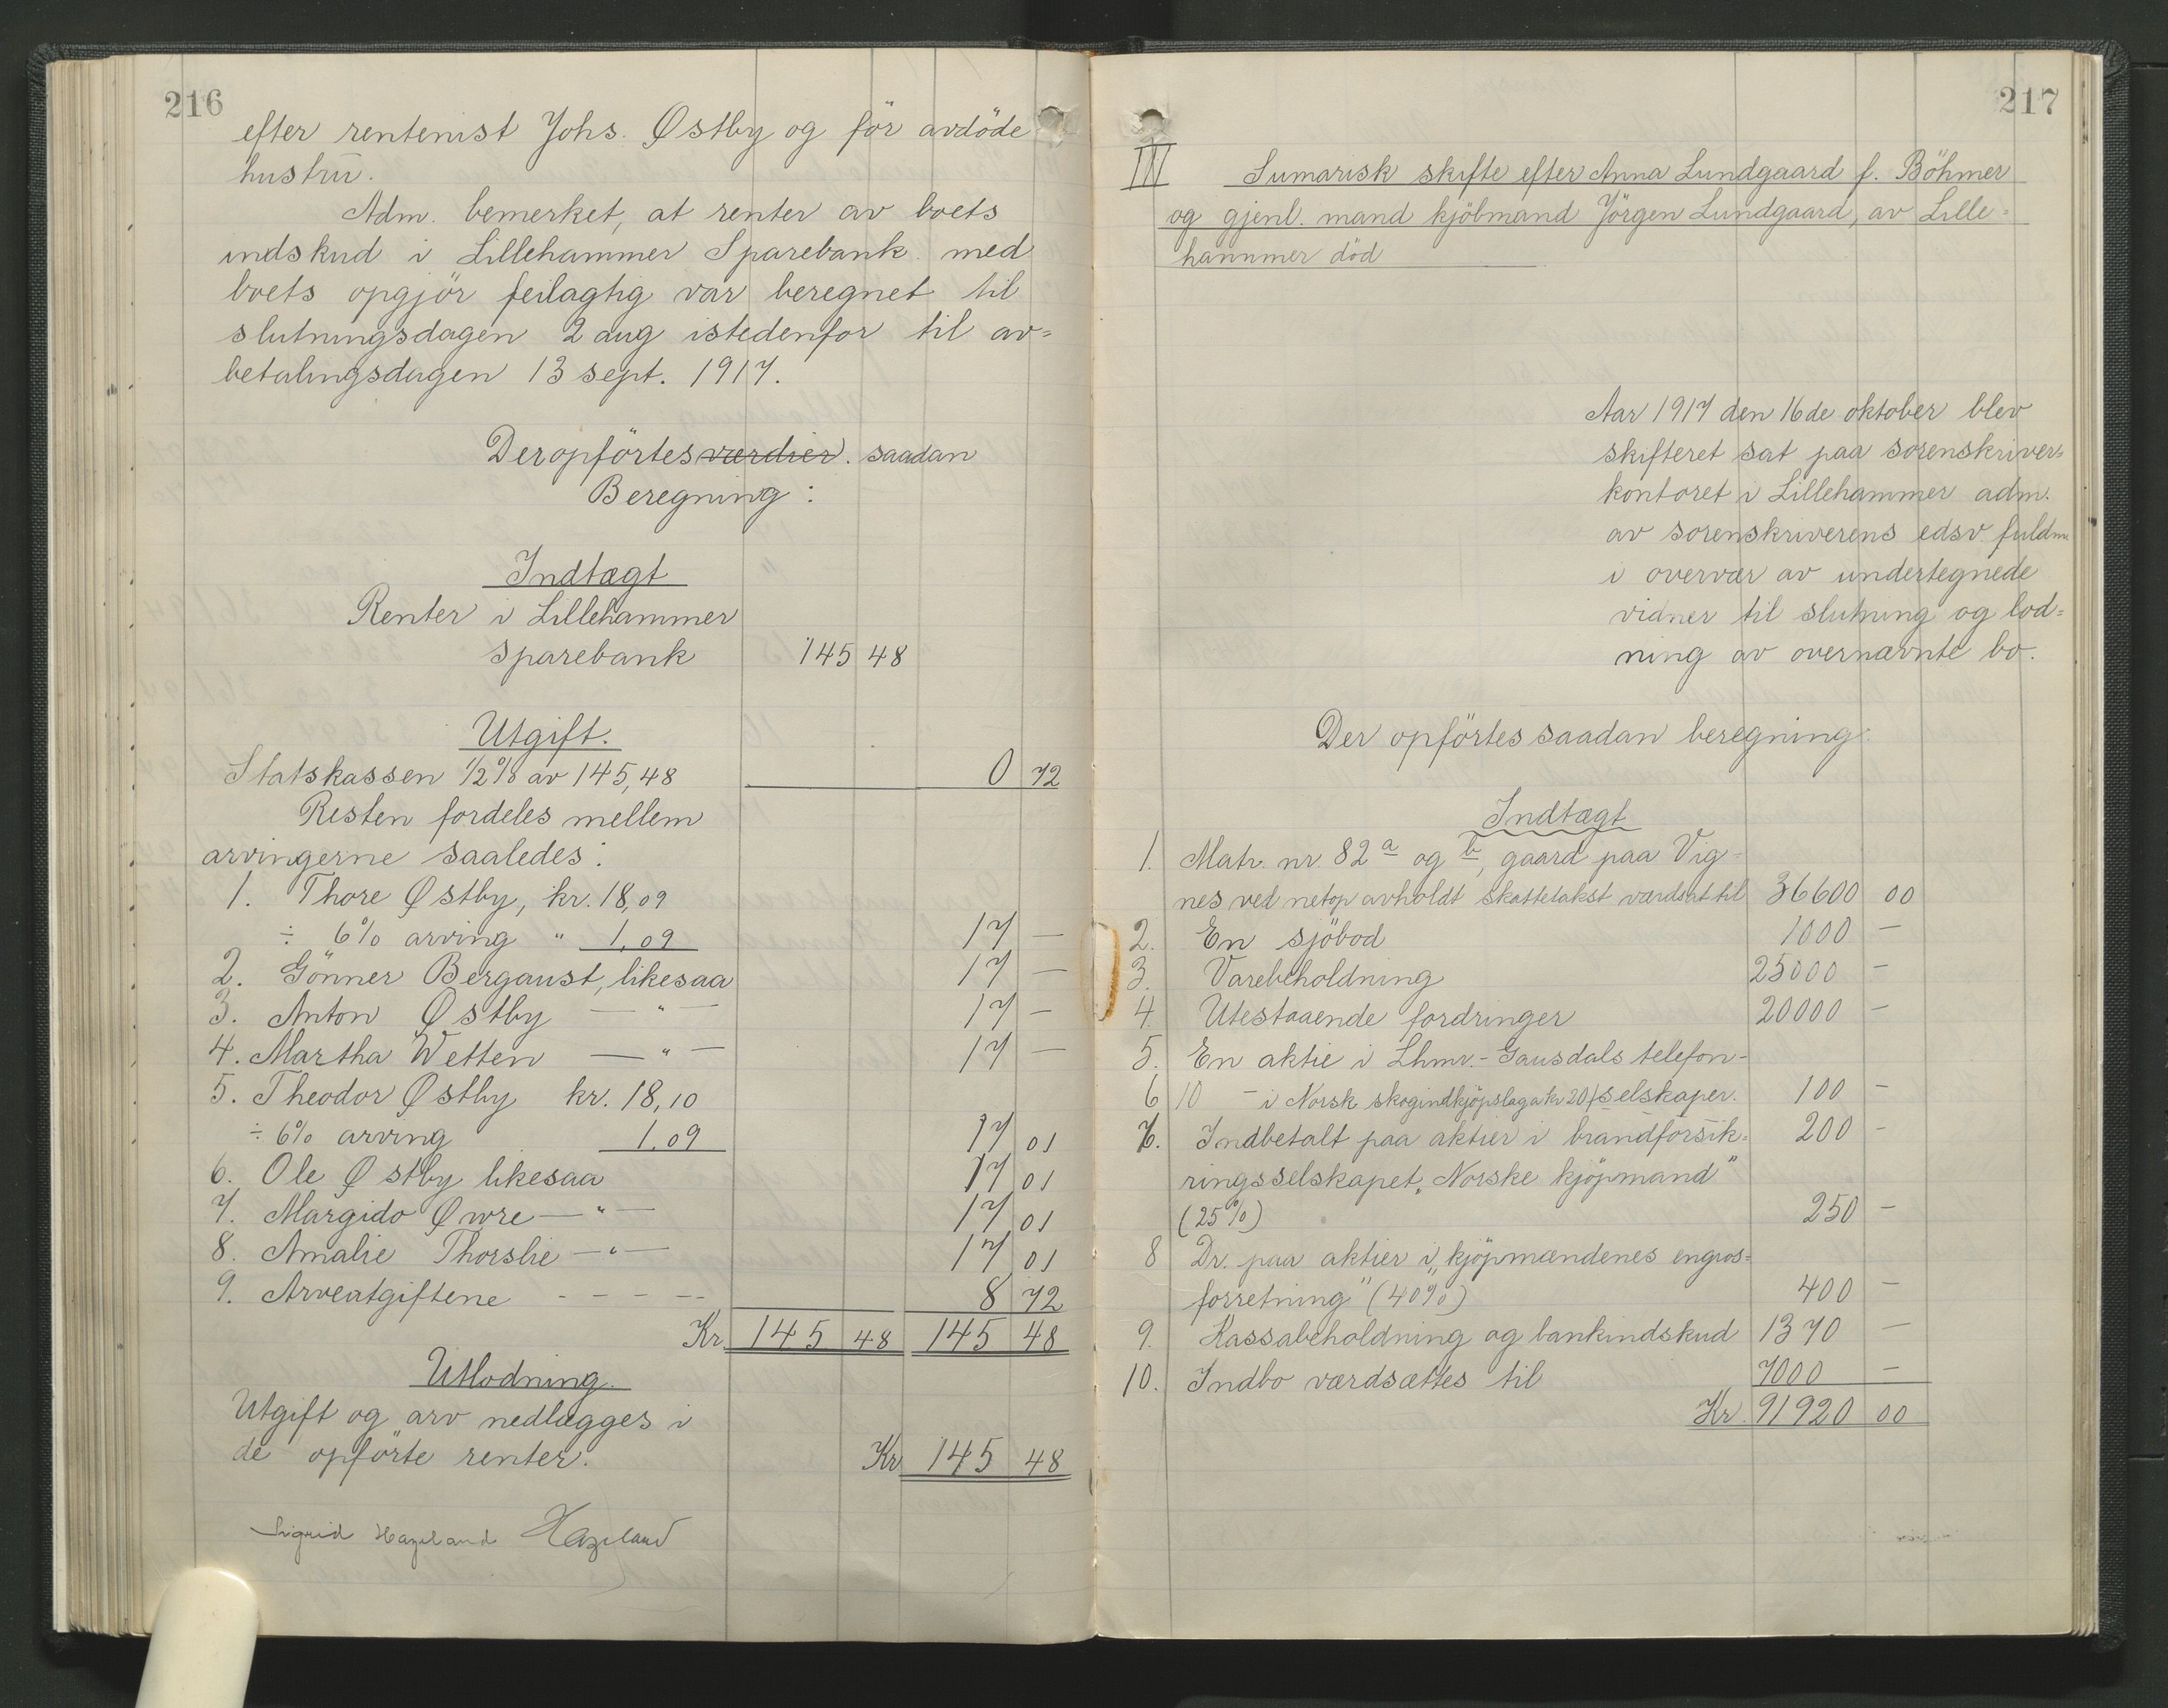 216
efter rentenist Johs. Østby og før avdöde
hustru.
Adm. bemerket, at renter av boets
indskud i Lillehammer Sparebank med
boets opgjör feilagtig var beregnet til
slutningsdagen 2 aug istedenfor til av=
betalingsdagen 13 sept. 1917.
Der opförtes værdier. saadan
Beregning:
Indtægt
Renter i Lillehammer
sparebank 145 48
Utgift.
Statskassen ½% av 145,48 0 72
Resten fordeles mellem
arvingerne saaledes:
1. Thore Østby, kr. 18,09
÷ 6% arving " 1,09 17 —
2. Gönner Bergaust, likesaa 17 —
3. Anton Østby — " — 17 —
4. Martha Wetten — " — 17 —
5. Theodor Østby kr. 18,10
÷ 6% arving 1.09 17 01
6. Ole Østby likesaa 17 01
7. Margido Øvre — " — 17 01
8. Amalie Thorslie — " — 17 01
9. Arveavgiftene - - - -- 8 72
Kr. 145 48 145 48
Utlodning.
Utgift og arv nedlægges i
de opförte renter. Kr 145 48
Sigrid Hazeland Hazeland
217
III Sumarisk skifte efter Anna Lundgaard f. Böhmer
og gjenl. mand kjöbmand Jörgen Lundgaard, av Lille=
hammer död
Aar 1917 den 16de oktober blev
skifteret sat paa sorenskriver=
kontoret i Lillehammer adm.
av sorenskriverens edsv. fuldm.
i overvær av undertegnede
vidner til slutning og lod=
ning av overnævnte bo.
Der opförtes saadan beregning:
Indtægt
1. Matr. nr. 82 a og b, gaard paa Vig=
nes ved netop avholdt skattetakst værdsat til 36600 00
2. En sjöbod 1000 —
3. Varebeholdning 25000 —
4. Utestaaende fordringer 20000 —
5. En aktie i Lhmr.- Gausdals telefon-
selskaper. 100 —
6 10 — i Norsk skogindkjöpslag a kr 20 200 —
7. Indbetalt paa aktier i brandforsik=
ringsselskapet „Norske kjöpmand"
(25%) 250 —
8 Do. paa aktier i „kjöpmændenes engros=
forretning" (40%) 400 —
9. Kassabeholdning og bankindskud 1370 —
10. Indbo værdsættes til 7000 —
Kr 91920 00